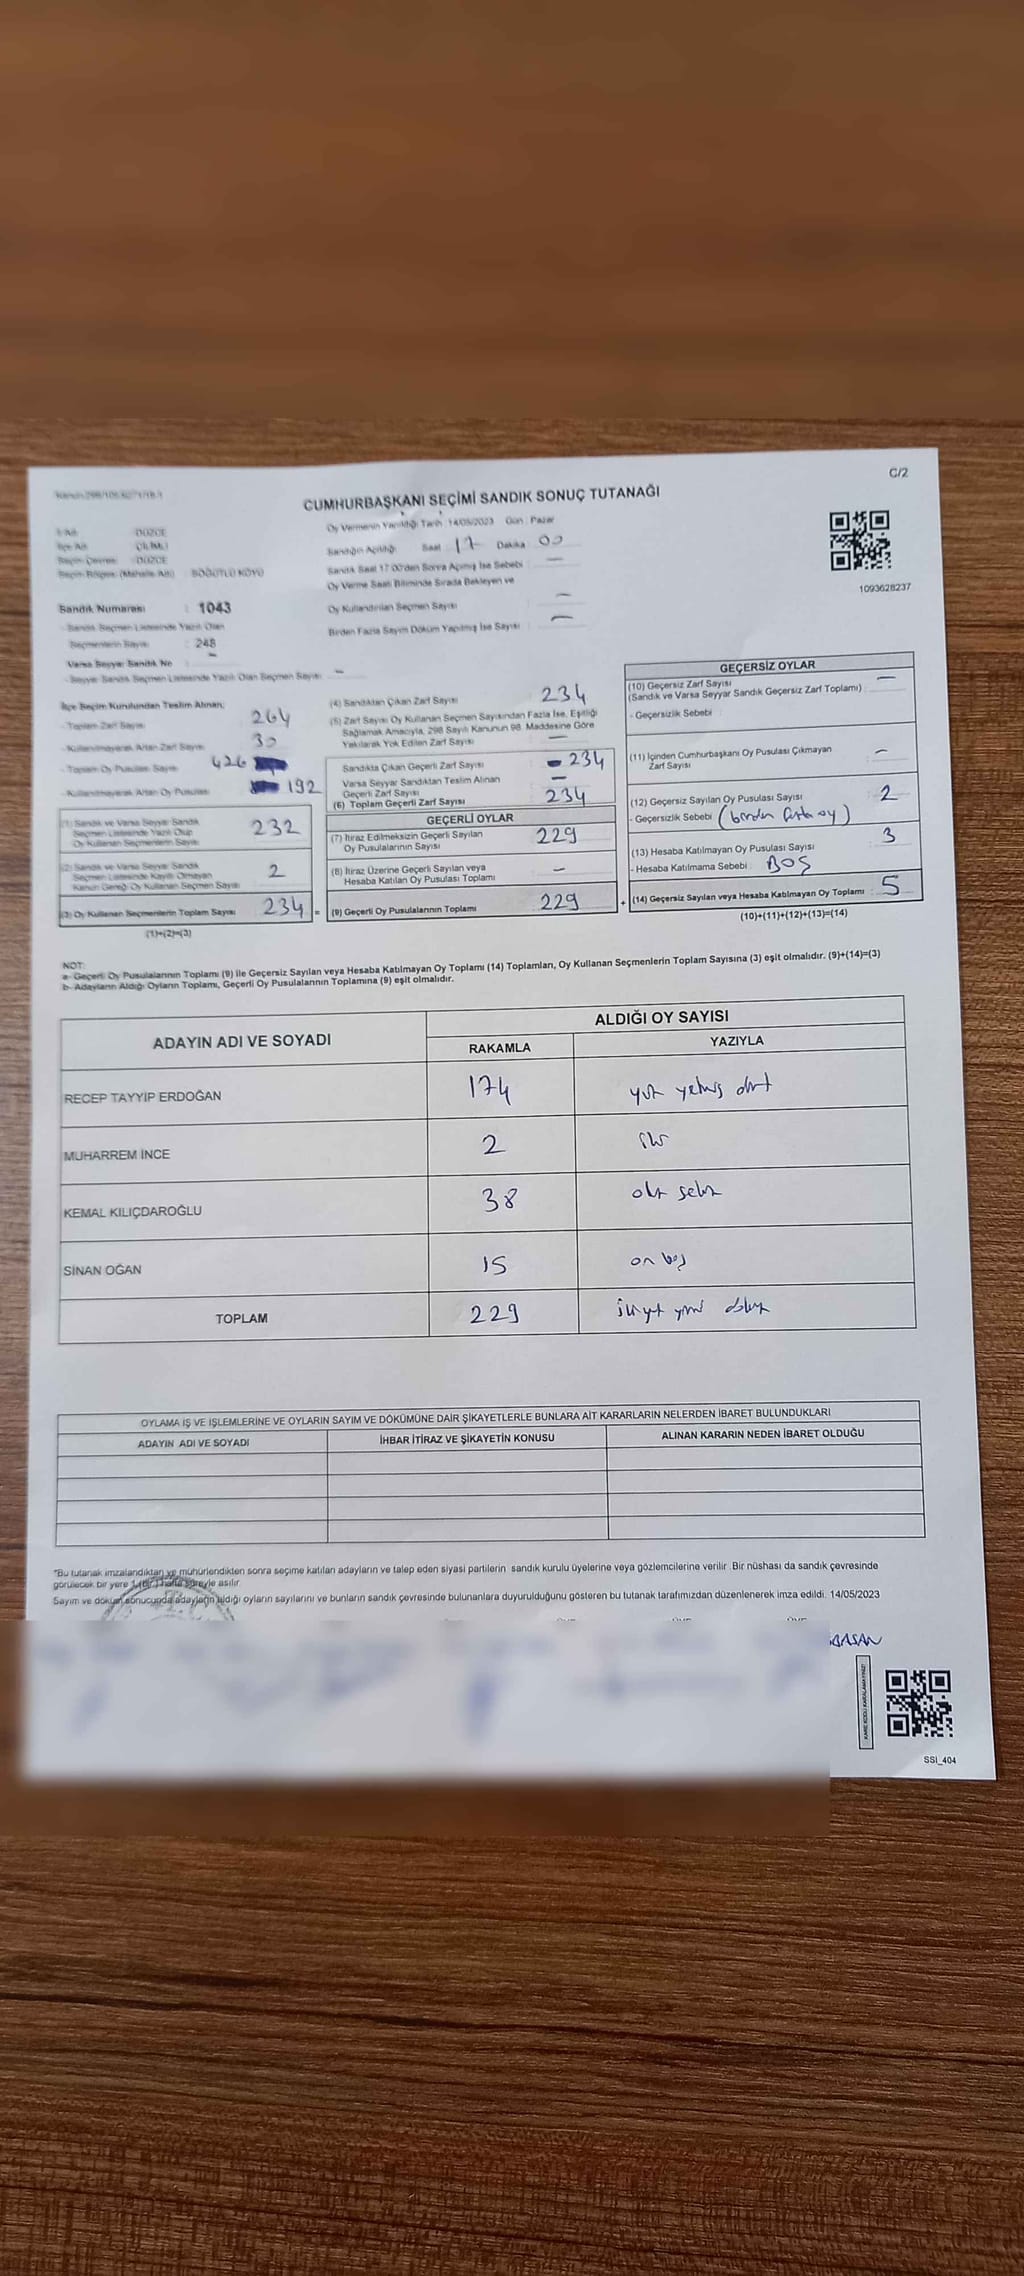 C/2
CUMHURBAŞKANI SEÇİMİ SANDIK SONUÇ TUTANAĞI
İli Adı : DÜZCE
İlçe Adı : ÇİLİMLİ
Seçim Çevresi : DÜZCE
Seçim Bölgesi (Mahalle Adı) : SÖĞÜTLÜ KÖYÜ
Sandık Numarası : 1043
- Sandık Seçmen Listesinde Yazılı Olan
Seçmenlerin Sayısı : 248
Varsa Seyyar Sandık No : -
- Seyyar Sandık Seçmen Listesinde Yazılı Olan Seçmen Sayısı : -
Oy Vermenin Yapıldığı Tarih : 14/05/2023 Gün : Pazar
Sandığın Açıldığı Saat 17 Dakika 00
Sandık Saat 17:00'den Sonra Açılmış İse Sebebi : -
Oy Verme Saati Bitiminde Sırada Bekleyen ve
Oy Kullandırılan Seçmen Sayısı : -
Birden Fazla Sayım Döküm Yapılmış İse Sayısı : -
1093628237
İlçe Seçim Kurulundan Teslim Alınan;
- Toplam Zarf Sayısı : 264
- Kullanılmayarak Artan Zarf Sayısı : 30
- Toplam Oy Pusulası Sayısı : 426
- Kullanılmayarak Artan Oy Pusulası : 192
(1) Sandık ve Varsa Seyyar Sandık
Seçmen Listesinde Yazılı Olup
Oy Kullanan Seçmenlerin Sayısı 232
(2) Sandık ve Varsa Seyyar Sandık
Seçmen Listesinde Kayıtlı Olmayan
Kanun Gereği Oy Kullanan Seçmen Sayısı 2
(3) Oy Kullanan Seçmenlerin Toplam Sayısı 234 =
(1)+(2)=(3)
(4) Sandıktan Çıkan Zarf Sayısı 234
(5) Zarf Sayısı Oy Kullanan Seçmen Sayısından Fazla İse, Eşitliği
Sağlamak Amacıyla, 298 Sayılı Kanunun 98. Maddesine Göre
Yakılarak Yok Edilen Zarf Sayısı -
Sandıkta Çıkan Geçerli Zarf Sayısı 234
Varsa Seyyar Sandıktan Teslim Alınan
Geçerli Zarf Sayısı -
(6) Toplam Geçerli Zarf Sayısı 234
GEÇERLİ OYLAR
(7) İtiraz Edilmeksizin Geçerli Sayılan
Oy Pusulalarının Sayısı 229
(8) İtiraz Üzerine Geçerli Sayılan veya
Hesaba Katılan Oy Pusulası Toplamı -
(9) Geçerli Oy Pusulalarının Toplamı 229 +
GEÇERSİZ OYLAR
(10) Geçersiz Zarf Sayısı -
(Sandık ve Varsa Seyyar Sandık Geçersiz Zarf Toplamı)
- Geçersizlik Sebebi :
(11) İçinden Cumhurbaşkanı Oy Pusulası Çıkmayan
Zarf Sayısı -
(12) Geçersiz Sayılan Oy Pusulası Sayısı 2
- Geçersizlik Sebebi : (birden fazla oy)
(13) Hesaba Katılmayan Oy Pusulası Sayısı 3
- Hesaba Katılmama Sebebi : BOŞ
(14) Geçersiz Sayılan veya Hesaba Katılmayan Oy Toplamı 5
(10)+(11)+(12)+(13)=(14)
NOT:
a- Geçerli Oy Pusulalarının Toplamı (9) ile Geçersiz Sayılan veya Hesaba Katılmayan Oy Toplamı (14) Toplamları, Oy Kullanan Seçmenlerin Toplam Sayısına (3) eşit olmalıdır. (9)+(14)=(3)
b- Adayların Aldığı Oyların Toplamı, Geçerli Oy Pusulalarının Toplamına (9) eşit olmalıdır.
ADAYIN ADI VE SOYADI ALDIĞI OY SAYISI
RAKAMLA YAZIYLA
RECEP TAYYİP ERDOĞAN 174 yüz yetmiş dört
MUHARREM İNCE 2 iki
KEMAL KILIÇDAROĞLU 38 otuz sekiz
SİNAN OĞAN 15 on beş
TOPLAM 229 ikiyüz yirmi dokuz
OYLAMA İŞ VE İŞLEMLERİNE VE OYLARIN SAYIM VE DÖKÜMÜNE DAİR ŞİKAYETLERLE BUNLARA AİT KARARLARIN NELERDEN İBARET BULUNDUKLARI
ADAYIN ADI VE SOYADI İHBAR İTİRAZ VE ŞİKAYETİN KONUSU ALINAN KARARIN NEDEN İBARET OLDUĞU
*Bu tutanak imzalandıktan ve mühürlendikten sonra seçime katılan adayların ve talep eden siyasi partilerin sandık kurulu üyelerine veya gözlemcilerine verilir. Bir nüshası da sandık çevresinde
görülecek bir yere 1 (Bir) hafta süreyle asılır.
Sayım ve döküm sonucunda adayların aldığı oyların sayılarını ve bunların sandık çevresinde bulunanlara duyurulduğunu gösteren bu tutanak tarafımızdan düzenlenerek imza edildi. 14/05/2023
BASAN
SSI_404